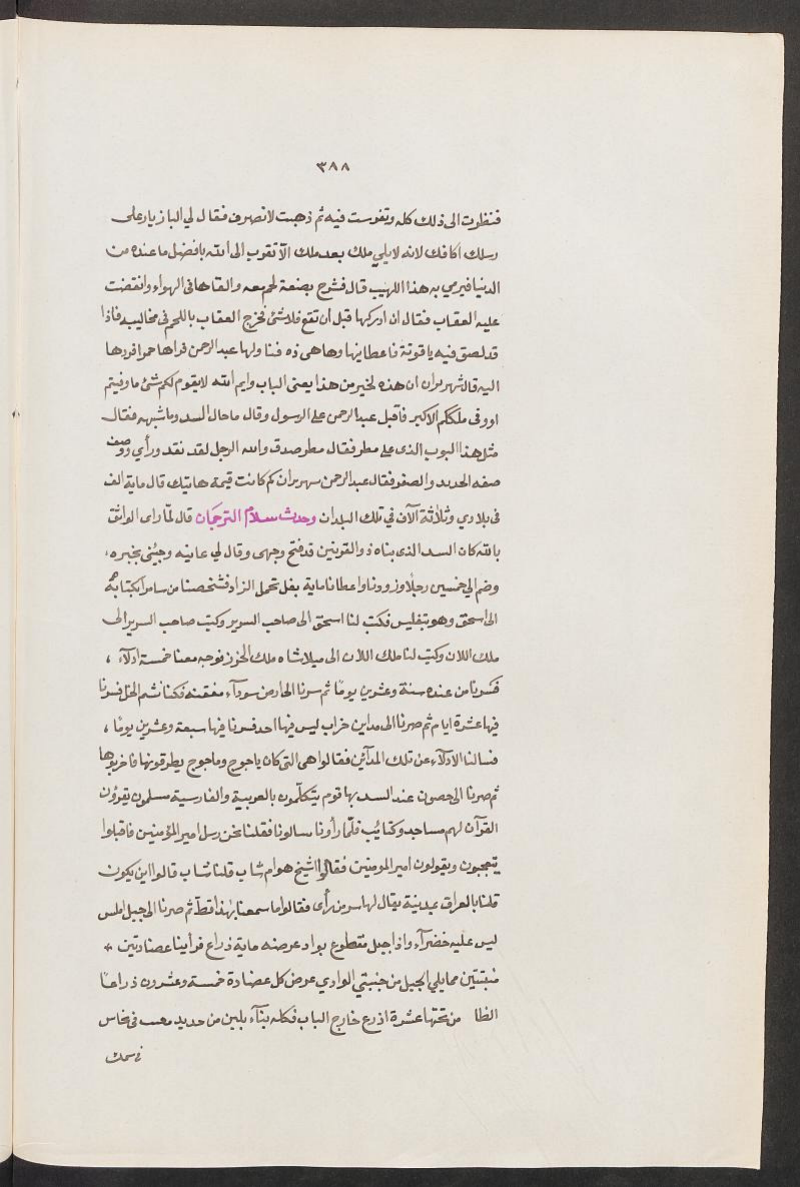 ٣٨٨
فنظرت الى ذلك كله وتفوست فيه ثم ذهبت لانصرف فقال لي البازيار على
رسلك اكافك لانه لايلي ملك بعد ملك الا تقرب الى الله بافضل ما عنده من
الدنيا فيرمي به هذا اللهيب قال فشرح بضعة لحم معه والقاها فى الهواء وانقضت
عليه العقاب فقال ان ادركها قبل أن تقع فلا شئ فخرج العقاب باللحم فى مخاليبه فاذا
قد لصق فيه ياقوتة فاعطاينها وهاهى ذه فتناولها عبد الرحمن فراها حمرا فردها
اليه قال شهربران ان هذه لخير من هذا يعنى الباب وايم الله لايقوم لكم شئ ما وفيتم
اووفى ملككم الاكبر فاقبل عبد الرحمن على الرسول وقال ما حال السد وما شبهه فقال
مثل هذا الثوب الذى على مطر فقال مطر صدق والله الرجل لقد نقد ورأي ووصف
صفه الحديد والصفر فقال عبد الرحمن سهربران كم كانت قيمة هاتيك قال ماية الف
فى بلادي وثلاثة آلاف في تلك البلدان وحدث سلام الترجمان قال لما راى الواثق
بالله كان السد الذى بناه ذو القرنين قد فتح وجهى وقال لي عاينه وجيئنى بخبره،
وضم الي خمسين رجلا وزودنا واعطانا ماية بغل تحمل الزاد فشخصنا من سامرا بكتابه
الى اسحق وهو بتفليس فكتب لنا اسحق الى صاحب السرير وكتب صاحب السرير الى
ملك اللان وكتب لنا ملك اللان الى ميلاشاه ملك الخزر فوجه معنا خمسة ادلآء،
فسرنا من عنده ستة وعشرين يومًا ثم سرنا الى ارض سودآء مفتنه فكنا نشم الخل فسرنا
فيها عشرة ايام ثم صرنا الى مداين خراب ليس فيها احد فسرنا فيها سبعة وعشرين يومًا،
فسالنا الادلآء عن تلك المدآئن فقالوا هى التى كان ياجوج وماجوج يطرقونها فاخربوها
ثم صرنا الى حصون عند السد بها قوم يتكلمون بالعربية والفارسية مسلمون يقرؤن
القرآن لهم مساجد وكتاتيب فلما رأونا سالونا فقلنا نحن رسل امير المؤمنين فاقبلوا
يتعجبون ويقولون امير المومنين فقالوا اشيخ هو ام شاب قلنا شاب قالوا اين يكون
قلنا بالعراق بمدينة يقال لها سر من رأى فقالوا ما سمعنا بهذا قط ثم صرنا الى جبل املس
ليس عليه خضرآء واذا جبل مقطوع بواد عرضه ماية ذراع فرأينا عضادتين
مبنيتين مما يلي الجبل من جنبتي الوادي عرض كل عضادة خمسة وعشرون ذراعا
الظا من تحتها عشرة اذرع خارج الباب فكله بنآء بلبن من حديد مغيب فى نحاس
فى سمك